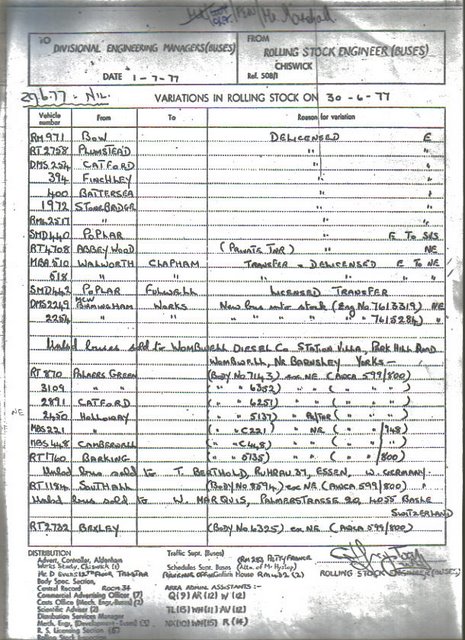 TO
DIVISIONAL ENGINEERING MANAGERS(BUSES)
DATE 1-7-77
FROM
ROLLING STOCK ENGINEER (BUSES)
CHISWICK
Ref. 508/1
29.6.77 - NIL.
VARIATIONS IN ROLLING STOCK ON 30-6-77
Vehicle number From To Reason for variation
RM 971 BOW DELICENSED E
RT 2758 PLUMSTEAD " "
DMS 254 CATFORD " "
394 FINCHLEY " "
400 BATTERSEA " "
1972 STONEBRIDGE " "
RML 2517 " " "
SMD 440 POPLAR " E TO SRS
RT 4708 ABBEY WOOD (PRIVATE TNR) NE
MBA 510 WALWORTH CLAPHAM TRANSFER - DELICENSED E TO NE
518 " " " " "
SMD 442 POPLAR FULWELL LICENSED TRANSFER
DMS 2249 MCW BIRMINGHAM WORKS New bus into stock (Eng No 7613319) NE
2254 " " " " " " " 7615284) "
Unlad buses sold to WOMBWELL DIESEL Co STATION VILLA, PARK HILL ROAD
WOMBWELL, NR BARNSLEY YORKS -
RT 870 PALMERS GREEN (BODY NO 7143) ex NE (AREA 599/800)
3109 " (" " 6382) " ( " " )
2891 CATFORD (" " 6251) " ( " " )
2450 HOLLOWAY (" " 5137) ( " " )
MBS 221 " (" " C221) " NE ( " /948)
MBS 448 CAMBERWELL (" " C448) " ( " " )
RT 1760 BARKING (" " 5735) " ( " /800)
Unlad bus sold to T. BERTHOLD, RUHRAU 37, ESSEN, W. GERMANY.
RT 1184 SOUTHALL (BODY NO 8594) ex NE (AREA 599/800) "
Unlad bus sold to W. MARQUIS, PALMARSTRASSE 20, 4055 BASLE
SWITZERLAND
RT 2732 BEXLEY (BODY NO 6325) ex NE (AREA 599/800)
NE
DISTRIBUTION
Advert. Controller, Aldenham
Works Study, Chiswick
Body Spec. Section,
Central Record ROOM 36
Commercial Advertising Officer (7)
Costs Office (Mech. Engr. Buses)
Scientific Adviser
Distribution Services Manager
Mech. Engr. (Development - Buses)
R. S. Licensing Section
Rolling Stock Inspection
Traffic Supt. (Buses)
Schedules Supt. (Buses)
AREA ADMIN. ASSISTANTS:-
Q(9) AR(12) W(12)
TL(15) WH(11) AV(12)
NX(10) R(14)
RM 259 PETTY FRANCE
ROLLING STOCK ENGINEER (BUSES)